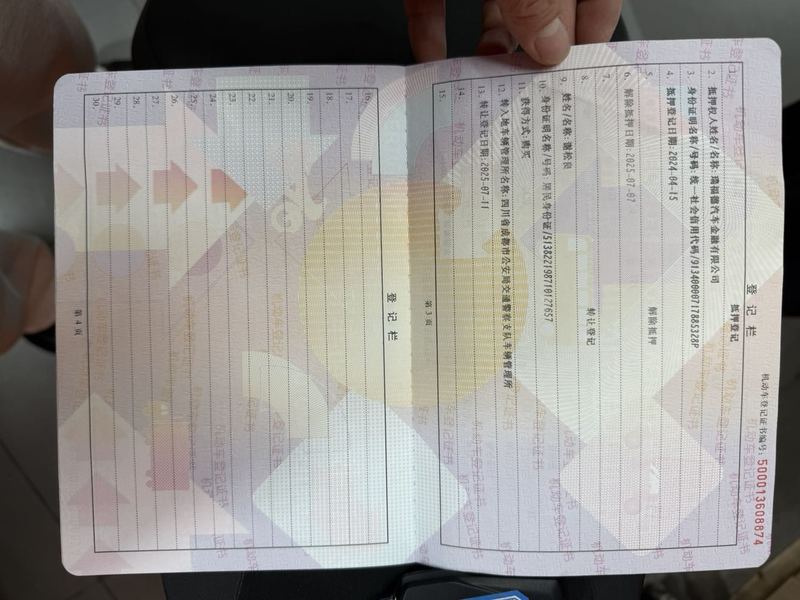 机动车登记证书编号：500013608874
登记栏
抵押登记
1.
2. 抵押权人姓名/名称：瑞福德汽车金融有限公司
3. 身份证明名称/号码：统一社会信用代码/91340000717885328P
4. 抵押登记日期：2024-04-15
5. 解除抵押
6. 解除抵押日期：2025-07-07
7.
8. 转让登记
9. 姓名/名称：谢松良
10. 身份证明名称/号码：居民身份证/513822198710127657
11. 获得方式：购买
12. 转入地车辆管理所名称：四川省成都市公安局交通警察支队车辆管理所
13. 转让登记日期：2025-07-11
14.
15.
第 3 页
登记栏
16.
17.
18.
19.
20.
21.
22.
23.
24.
25.
26.
27.
28.
29.
30.
第 4 页